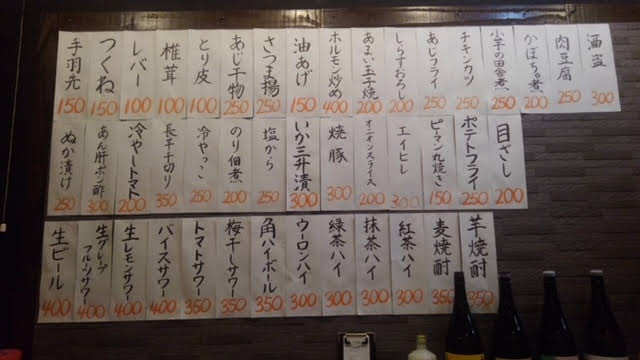 酒盗 300
肉豆腐 250
かぼちゃ煮 200
小芋の田舎煮 250
チキンカツ 250
あじフライ 250
しらすおろし 200
あまい玉子焼 200
ホルモン炒め 400
油あげ 150
さつま揚 250
あじ干物 250
とり皮 100
椎茸 100
レバー 100
つくね 150
手羽先 150
目ざし 200
ポテトフライ 250
ピーマン丸焼き 150
エイヒレ 300
オニオンスライス 200
焼豚 300
いか三升漬 300
塩から 250
のり佃煮 200
冷やっこ 250
長芋千切り 350
冷やしトマト 200
あん肝ポン酢 300
ぬか漬け 250
芋焼酎 350
麦焼酎 350
紅茶ハイ 300
抹茶ハイ 300
緑茶ハイ 300
ウーロンハイ 300
角ハイボール 350
梅干しサワー 350
トマトサワー 350
バイスサワー 400
生レモンサワー 400
生グレープフルーツサワー 400
生ビール 400